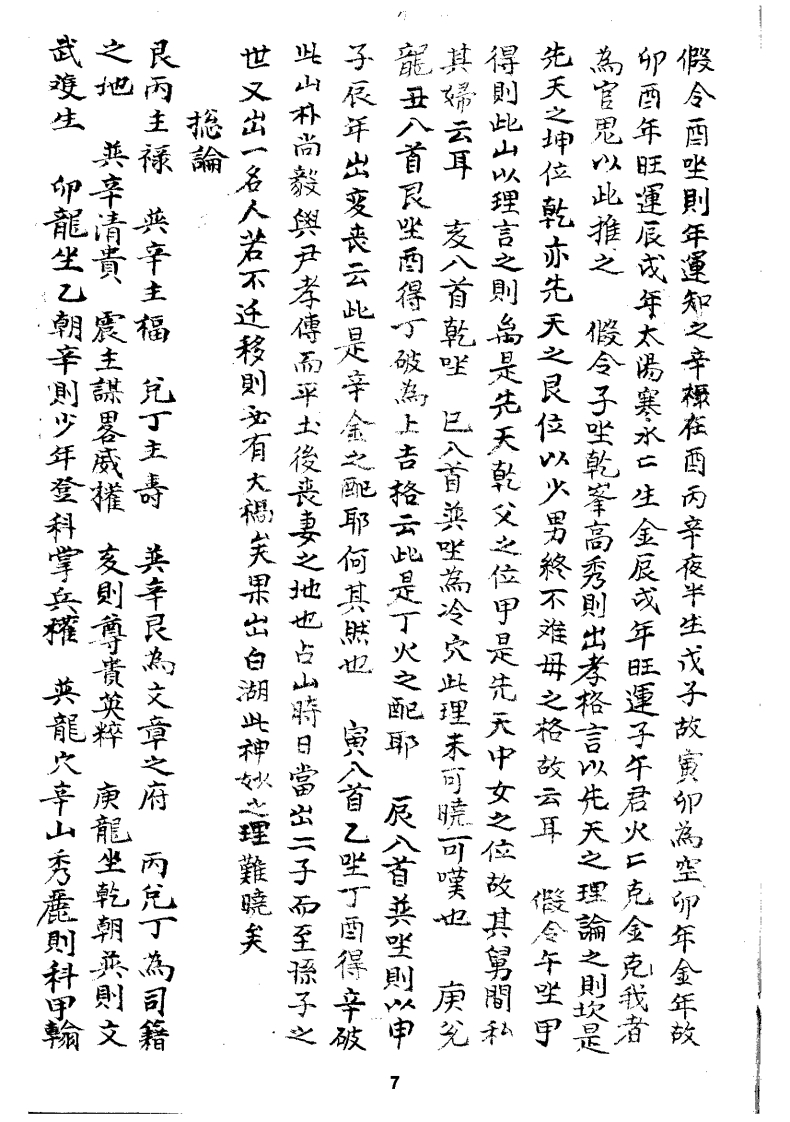 假令酉坐則年運知之辛祿在酉丙辛夜半生戊子故寅卯為空卯年金年故
卯酉年旺運辰戌年太陽寒水亡生金辰戌年旺運子午君火亡克金克我者
為官鬼以此推之　假令子坐乾峯高秀則出孝格言以先天之理論之則坎是
先天之坤位乾亦先天之艮位以少男終不难母之格故云耳　假令午坐甲
得則此山以理言之則禼是先天乾父之位甲是先天中女之位故其舅間私
其婦云耳　亥入首乾坐　巳入首巽坐為冷穴此理未可曉可嘆也　庚兌
龍丑入首艮坐酉得丁破為上吉格云此是丁火之配耶　辰入首巽坐則以申
子辰年出変喪云此是辛金之配耶何其然也　寅入首乙坐丁酉得辛破
此山朴尚毅與尹孝傳而平土後喪妻之地也占山時日當出二子而至孫子之
世又出一名人若不迁移則必有大禍矣果出白湖此神妙之理難曉矣
摠論
艮丙主祿　巽辛主福　兌丁主壽　巽辛艮為文章之府　丙兌丁為司籍
之地　巽辛清貴　震主謀畧威權　亥則尊貴英粹　庚龍坐乾朝巽則文
武竝生　卯龍坐乙朝辛則少年登科掌兵權　巽龍穴辛山秀麗則科甲翰
7